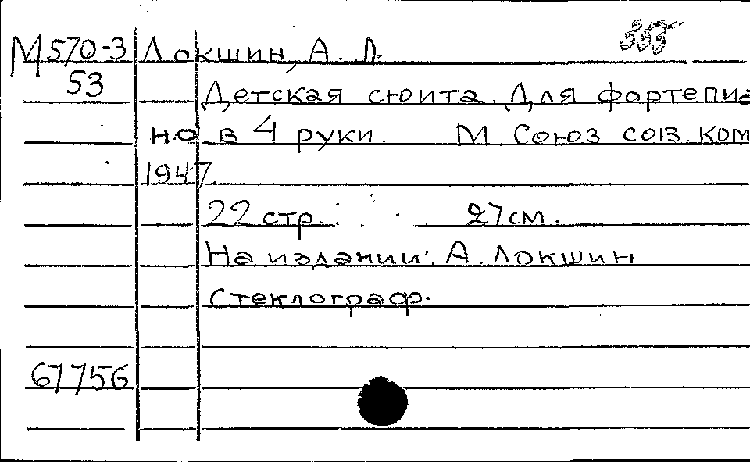 М570-3 Локшин, А. Л.
53
Детская сюита. Для фортепиа
но в 4 руки. М. Союз сов. ком
1947.
22 стр. 27 см.
На издании: А. Локшин
Стеклограф.
67756